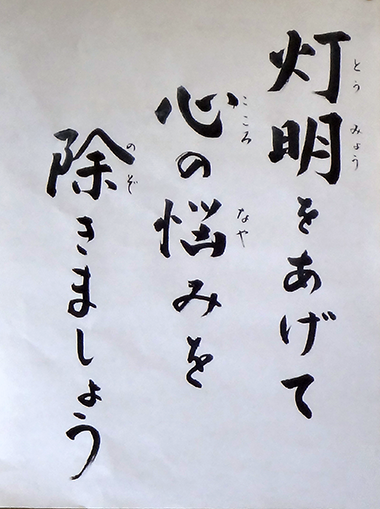 灯明をあげて
とうみょう
心の悩みを
こころ なや
除きましょう
のぞ